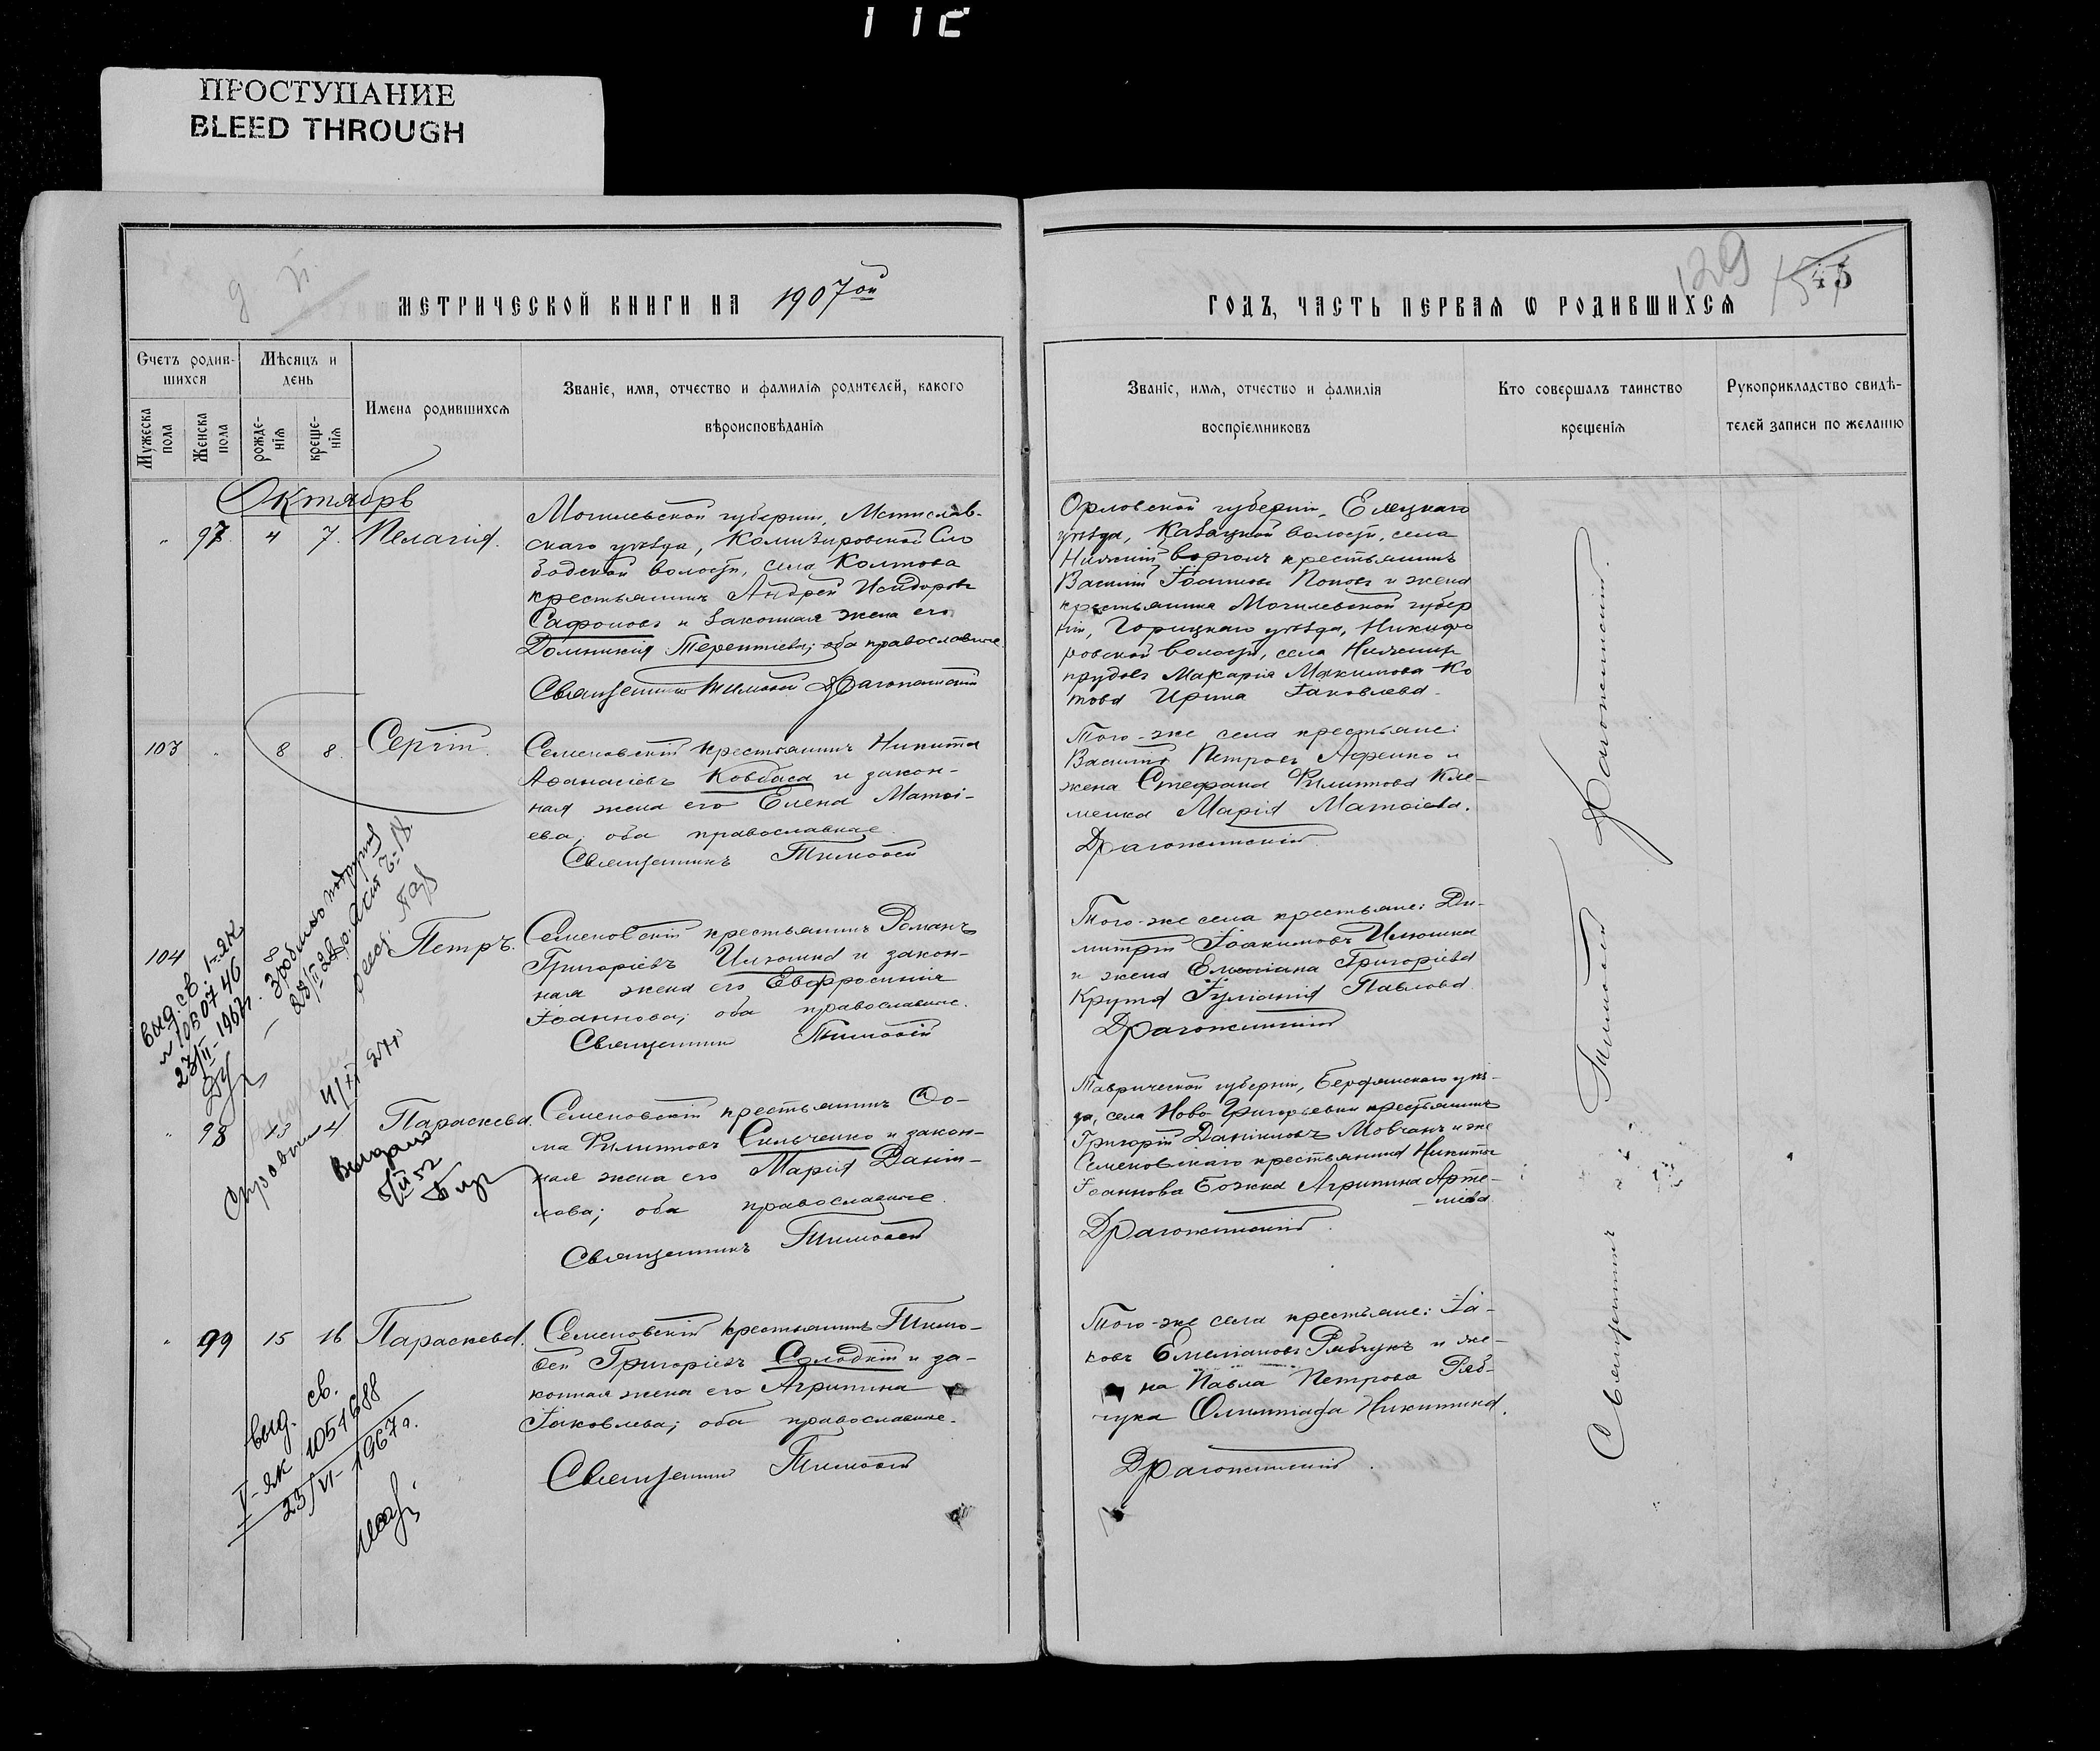 ПРОСТУПАНИЕ
BLEED THROUGH
МЕТРИЧЕСКОЙ КНИГИ НА 1907ой
ГОДЪ, ЧАСТЬ ПЕРВАЯ Ѡ РОДИВШИХСЯ
129
45
Счетъ родив-
шихся
Мѣсяцъ и
день
Мужеска
пола
Женска
пола
рожде-
нія
креще-
нія
Имена родившихся
Званіе, имя, отчество и фамилія родителей, какого
вѣроисповѣданія
Званіе, имя, отчество и фамилія
воспріемниковъ
Кто совершалъ таинство
крещенія
Рукоприкладство свидѣ-
телей записи по желанію
Октябрь
97. 4 7. Пелагія.
Могилевской губерніи, Мстислав-
скаго уѣзда, Сло
бодской волости, села Колтова
крестьянинъ Андрей Исидоровъ
Сафоновъ и законная жена его
Домникія Терентіева; оба православные
Священникъ Тимоѳей Драгожинскій
Орловской губерніи, Елецкаго
уѣзда, Казацкой волости, села
Нижній Ворголъ крестьянинъ
Василій Іоанновъ Поповъ и жена
крестьянина Могилевской губер
ніи, Горицкаго уѣзда, Никифо
ровской волости, села
прудовъ Макарія Ко
това Ирина Іаковлева.
103 8 8. Сергій.
Семеновскій крестьянинъ Никита
Аѳанасіевъ Ковбаса и закон-
ная жена его Елена Матѳі-
ева; оба православные.
Священникъ Тимоѳей
Того-же села крестьяне:
Василій Петровъ Аѳенко и
жена Стефана Филиппова Кле-
менка Марія Матѳіева.
Драгожинскій.
104 Петръ.
Семеновскій крестьянинъ Романъ
Григоріевъ Илюшка и закон-
ная жена его Евфросинія
Іоаннова; оба православные.
Священникъ Тимоѳей
Того-же села крестьяне: Ди-
митрій Іоакимовъ Илюшка
и жена Емеліана Григоріева
Крутя Іуліанія Павлова.
Драгожинскій
98 13 14 Параскева.
Семеновскій крестьянинъ Ѳо-
ма Филипповъ Сильченко и закон-
ная жена его Марія Даніи-
лова; оба православные.
Священникъ Тимоѳей
Таврической губерніи, Бердянскаго уѣз-
да, села Ново-Григорьевки крестьянинъ
Григорій Даніиловъ Мовчанъ и же
Семеновскаго крестьянина Никиты
Іоаннова Божка Агрипина Арте-
міева
Драгожинскій.
99 15 16 Параскева.
Семеновскій крестьянинъ Тимо-
ѳей Григоріевъ Солодкій и за-
конная жена его Агрипина
Іаковлева; оба православные.
Священникъ Тимоѳей
Того-же села крестьяне: Іа-
ковъ Емеліановъ Рябчукъ и же-
на Павла Петрова Ряб-
чука Олимпіада Никитина.
Драгожинскій.
Священникъ Тимоѳей Драгожинскій.
выд. св. I-як
23/II-1966
Выдано
выд. св.
V-як 1054688
23/VI-1967г.